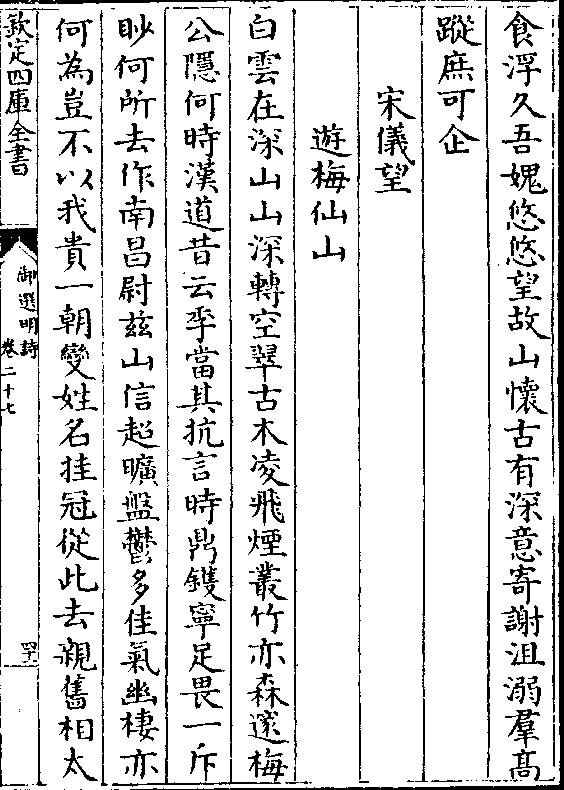 食浮久吾媿悠悠望故山懷古有深意寄謝沮溺羣髙
蹤庶可企
宋儀望
遊梅仙山
白雲在深山山深轉空翠古木凌飛煙叢竹亦森邃梅
公隱何時漢道昔云季當其抗言時鼎鑊寧足畏一斥
眇何所去作南昌尉兹山信超曠盤鬱多佳氣幽棲亦
何為豈不以我貴一朝變姓名挂冠從此去親舊相太
欽定四庫全書
御選明詩
卷二十七